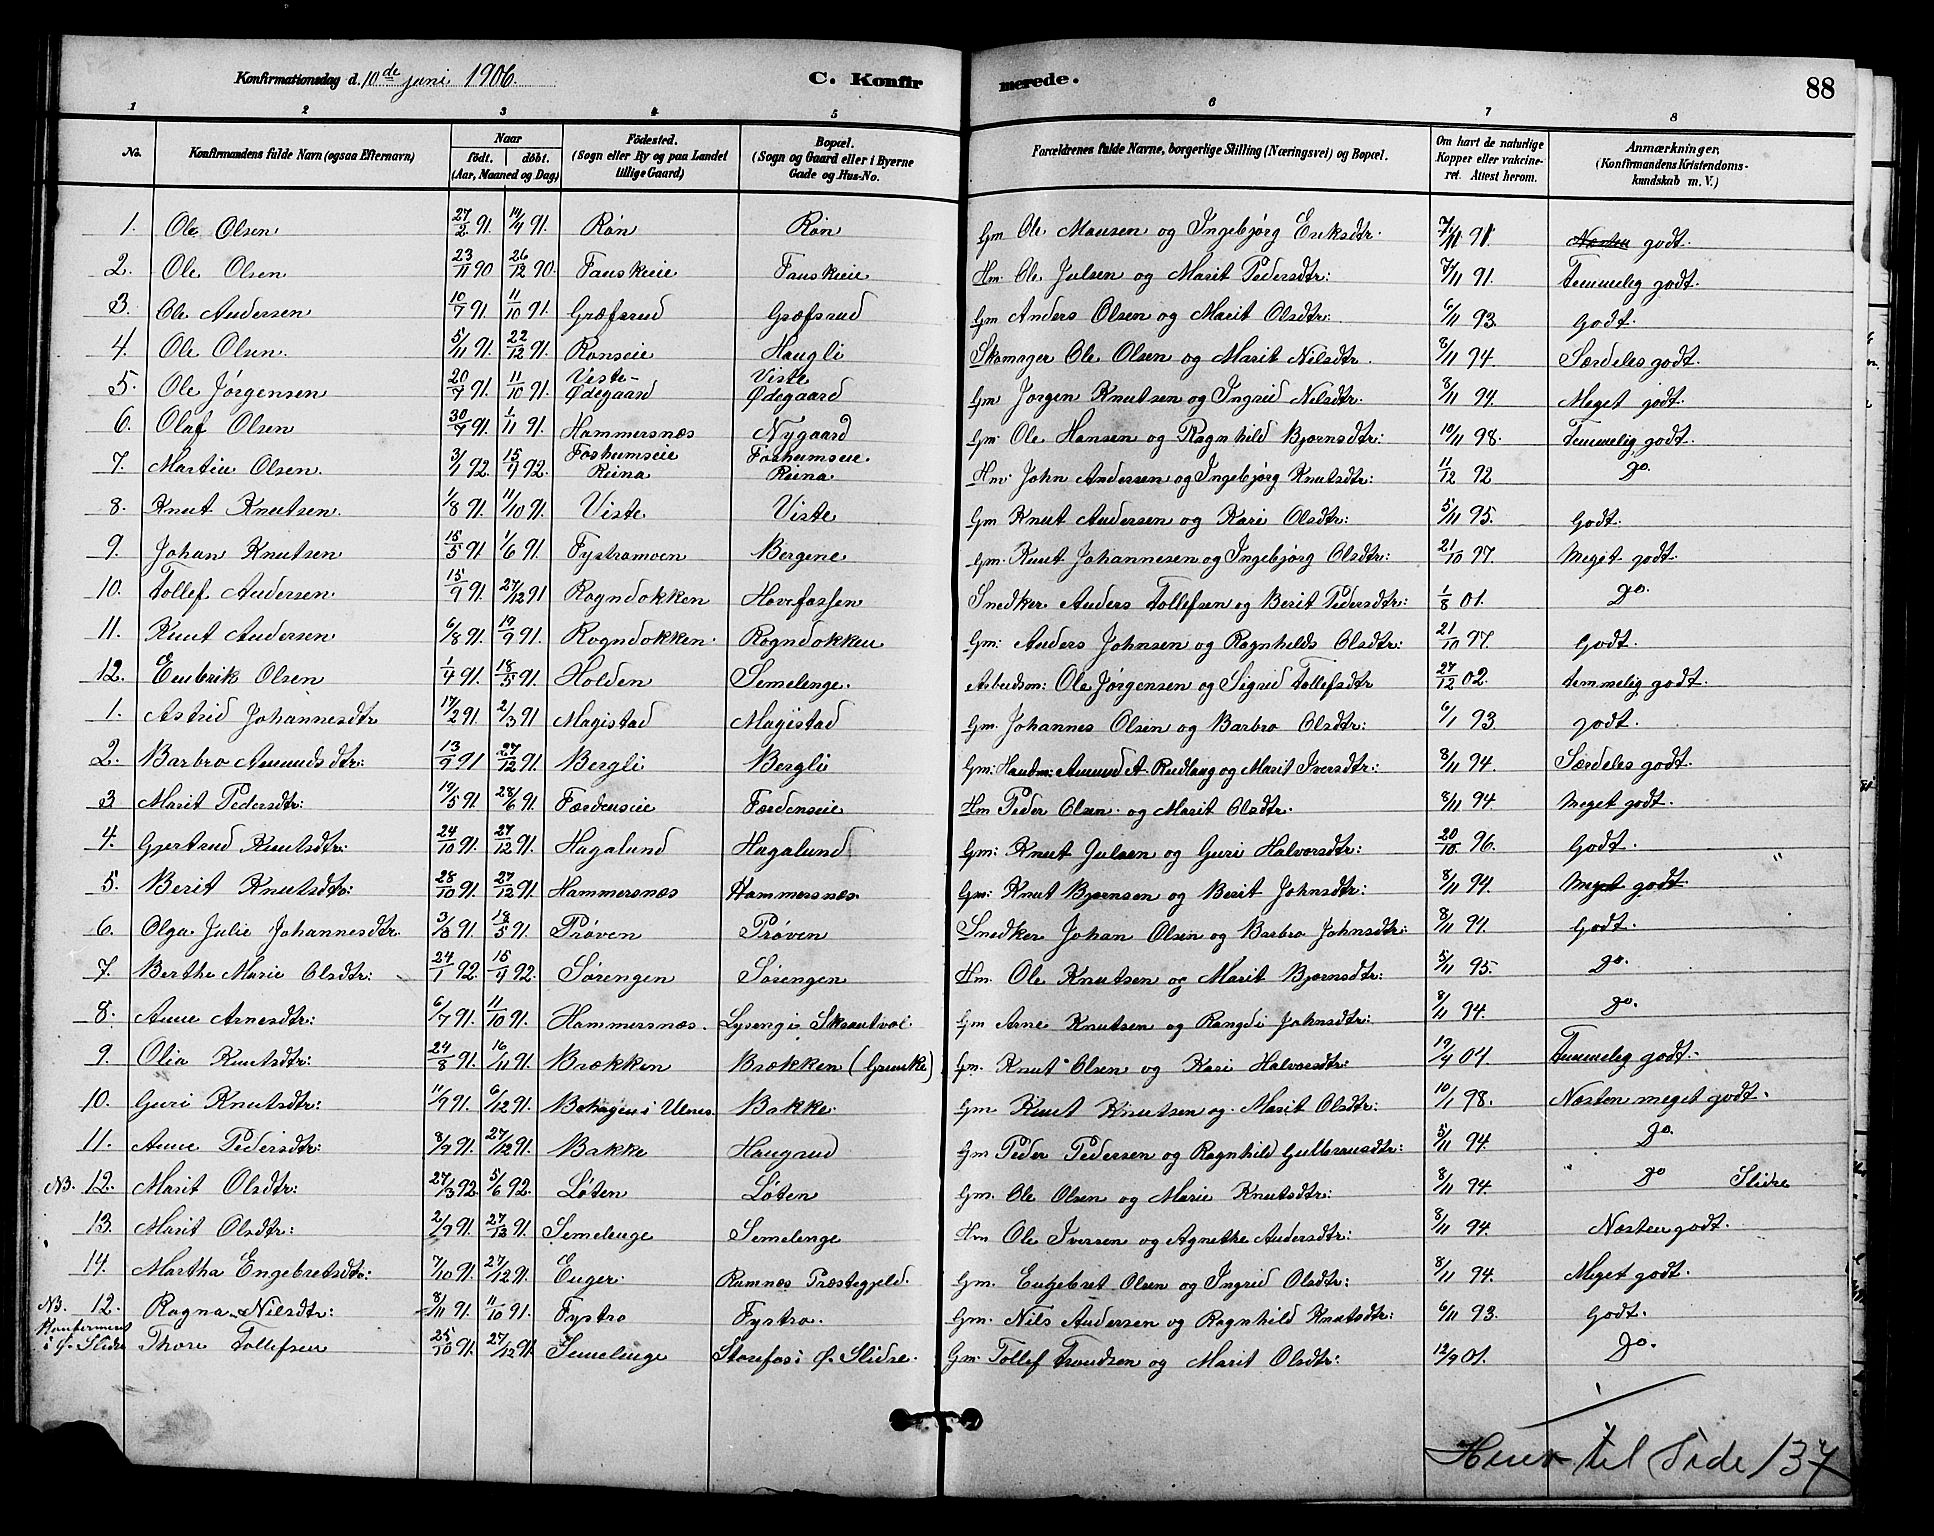 Konfirmationsdag d. 10de juni 1906. C. Konfirmerede. 88
1 2 3 4 5 6 7 8
No. Konfirmandens fulde Navn (ogsaa Efternavn) Naar født. døbt. (Aar, Maaned og Dag) Fødested. (Sogn eller By og paa Landet tillige Gaard) Bopæl. (Sogn og Gaard eller i Byerne Gade og Hus-No. Forældrenes fulde Navne, borgerlige Stilling (Næringsvei) og Bopæl. Om havt de naturlige Kopper eller vakcineret. Attest herom. Anmærkninger, (Konfirmandens Kristendomskundskab m. V.)
1. Ole Olsen 27/2 91. 19/4 91. Røn Røn Gm Ole Monsen og Ingebjørg Eriksdtr. 7/11 91. Næsten godt.
2. Ole Olsen 23/11 90 26/12 90. Fauskeie Fauskeie Hm. Ole Julsen og Marit Pedersdtr: 7/11 91. Temmelig godt.
3. Ole Andersen 10/7 91. 11/10 91. Græfsrud Græfsrud Gm Anders Olsen og Marit Olsdtr: 6/11 93. Godt.
4. Ole Olsen. 5/11 91. 22/12 91. Rønseie Haugli Skomager Ole Olsen og Marit Nilsdtr. 8/11 94. Særdeles godt.
5. Ole Jørgensen 20/7 91. 11/10 91. Viste-Ødegaard Viste Ødegaard Gm Jørgen Knutsen og Ingrid Nilsdtr. 8/11 94. Meget godt.
6. Olaf Olsen 30/7 91. 1/11 91. Hammersnæs Nygaard Gm. Ole Hansen og Ragnhild Bjørnsdtr: 10/11 98. Temmelig godt.
7. Martin Olsen. 3/1 92. 15/4 92. Fosheimseie Reina Fosheimseie. Reina Hm. John Andersen og Ingebjørg Knutsdtr: 11/12 92 Do.
8. Knut Knutsen. 1/8 91. 11/10 91. Viste Viste Gm Knut Andersen og Kari Olsdtr: 5/11 95. Godt.
9. Johan Knutsen 18/5 91 1/6 91. Fystromoen Bergene Gm. Knut Johannesen og Ingebjørg Olsdtr: 21/10 97. Meget godt.
10. Tollef Andersen 15/9 91. 27/12 91 Rogndokken Hovefossen Snedker Anders Tollefsen og Berit Pedersdtr: 1/8 01. Do.
11. Knut Andersen 6/8 91. 19/9 91. Rogndokken. Rogndokken Gm: Anders Johnsen og Ragnhilds Olsdtr: 21/10 97. Godt.
12. Embrik Olsen 1/4 91. 18/5 91. Holden Semelenge. Arbeidsm: Ole Jørgensen og Sigrid Tollefsdtr 27/12 02. temmelig godt.
1. Astrid Johannesdtr 17/2 91. 2/3 91 Magistad Magistad Gm. Johannes Olsen og Barbro Olsdtr: 6/1 93. godt.
2. Barbro Amundsdtr: 13/9 91. 27/12 91. Bergli Bergli Gm: Handm: Amund A. Rudlang og Marit Iversdtr: 8/11 94. Særdeles godt.
3 Marit Pedersdtr: 19/5 91. 28/6 91. Færdenseie Færdenseie Hm Peder Olsen og Marit Olsdtr. 8/11 94 Meget godt.
4. Gjertrud Knutsdtr: 24/10 91. 27/12 91. Hagalund Hagalund Gm: Knut Julsen og Guri Halvorsdtr: 20/10 96. Godt.
5. Berit Knutsdtr: 28/10 91. 27/12 91. Hammersnæs Hammersnæs. Gm: Knut Bjørnsen og Berit Johnsdtr: 8/11 94. Meget godt
6. Olga Julie Johannesdtr. 3/3 91. 18/5 91. Prøven Prøven Snedker Johan Olsen og Barbro Johnsdtr: 8/11 94. Godt.
7. Berthe Marie Olsdtr: 24/1 92. 18/4 92. Sørengen Sørengen Hm. Ole Knutsen og Marit Bjørnsdtr: 5/11 95. Do.
8. Anne Arnesdtr: 6/7 91. 11/10 91. Hammersnæs. Lysengi Skrautvol. Gm Arne Knutsen og Rangdi Johnsdtr: 8/11 94. Do.
9. Olia Knutsdtr: 24/8 91. 16/11 91. Brækken Brækken (Grunke) Gm. Knut Olsen og Kari Halvorsdtr: 19/4 04. Temmelig godt.
10. Guri Knutsdtr: 11/9 91. 6/12 91. Behagen i Ulnes. Bakke. Gm Knut Knutsen og. Marit Olsdtr: 10/1 98. Næsten meget godt.
11. Anne Pedersdtr: 8/9 91. 27/12 91. Bakke Haugrud Gm Peder Pedersen og Ragnhild Gulbransdtr: 5/11 94. Do.
NB. 12. Marit Olsdtr: 27/3 92. 5/6 92. Løten Løten Gm. Ole Olsen og Marie Knutsdtr: 8/11 94. Do Slidre
13. Marit Olsdtr: 2/9 91. 27/12 91. Semelenge Semelenge Hm Ole Iversen og Agnethe Andersdtr: 8/11 94. Næsten godt.
14. Martha Engebretsdtr: 7/10 91. 27/12 91. Enger. Ramnæs Præstegjeld. Gm. Engebret Olsen og Ingrid Olsdtr: 8/11 94. Meget godt.
NB. 12. Ragna Nilsdtr: 8/11 91. 11/10 91. Fystro Fystro. Gm. Nils Andersen og Ragnhild Knutsdtr: 6/11 93. Godt.
Konfermeret i Ø. Slidre Thore Tollefsen 25/10 91. 27/12 91. Semelenge Storefos i Ø. Slidre. Gm. Tollef Trondsen og Marit Olsdtr: 12/9 01. Do.
til Side 137